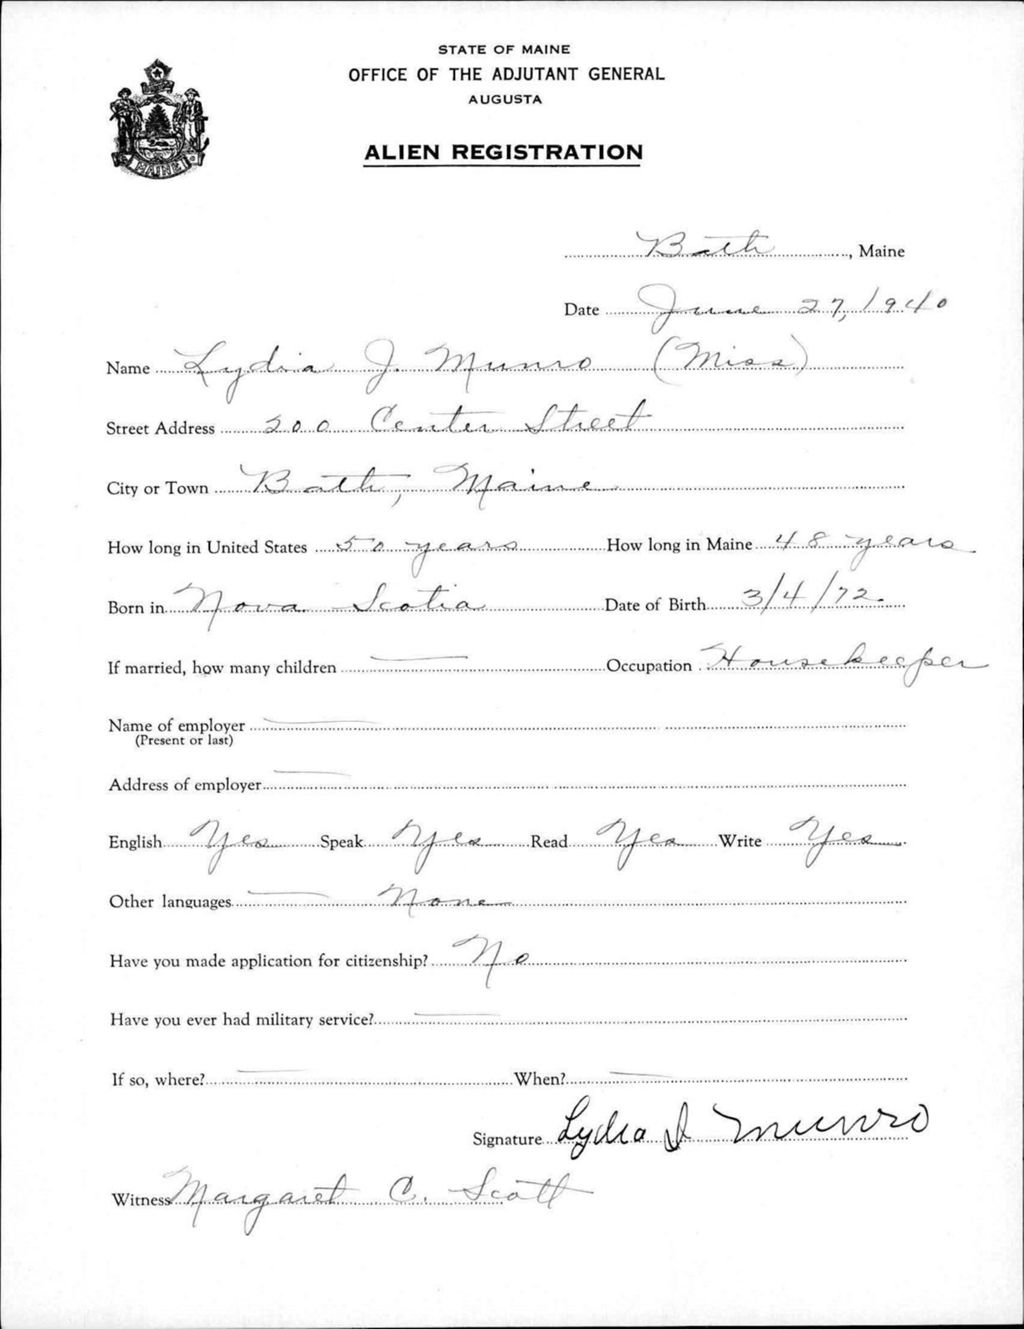 STATE OF MAINE
OFFICE OF THE ADJUTANT GENERAL
AUGUSTA
ALIEN REGISTRATION
MAINE
Bath, Maine
Date June 27, 1940
Name Lydia J. Munro (Miss)
Street Address 200 Center Street
City or Town Bath, Maine
How long in United States 50 years How long in Maine 48 years
Born in Nova Scotia Date of Birth 3/4/72.
If married, how many children — Occupation Housekeeper
Name of employer —
(Present or last)
Address of employer —
English Yes Speak Yes Read Yes Write Yes
Other languages — None
Have you made application for citizenship? No
Have you ever had military service? —
If so, where? — When? —
Signature Lydia J Munro
Witness Margaret C. Scott